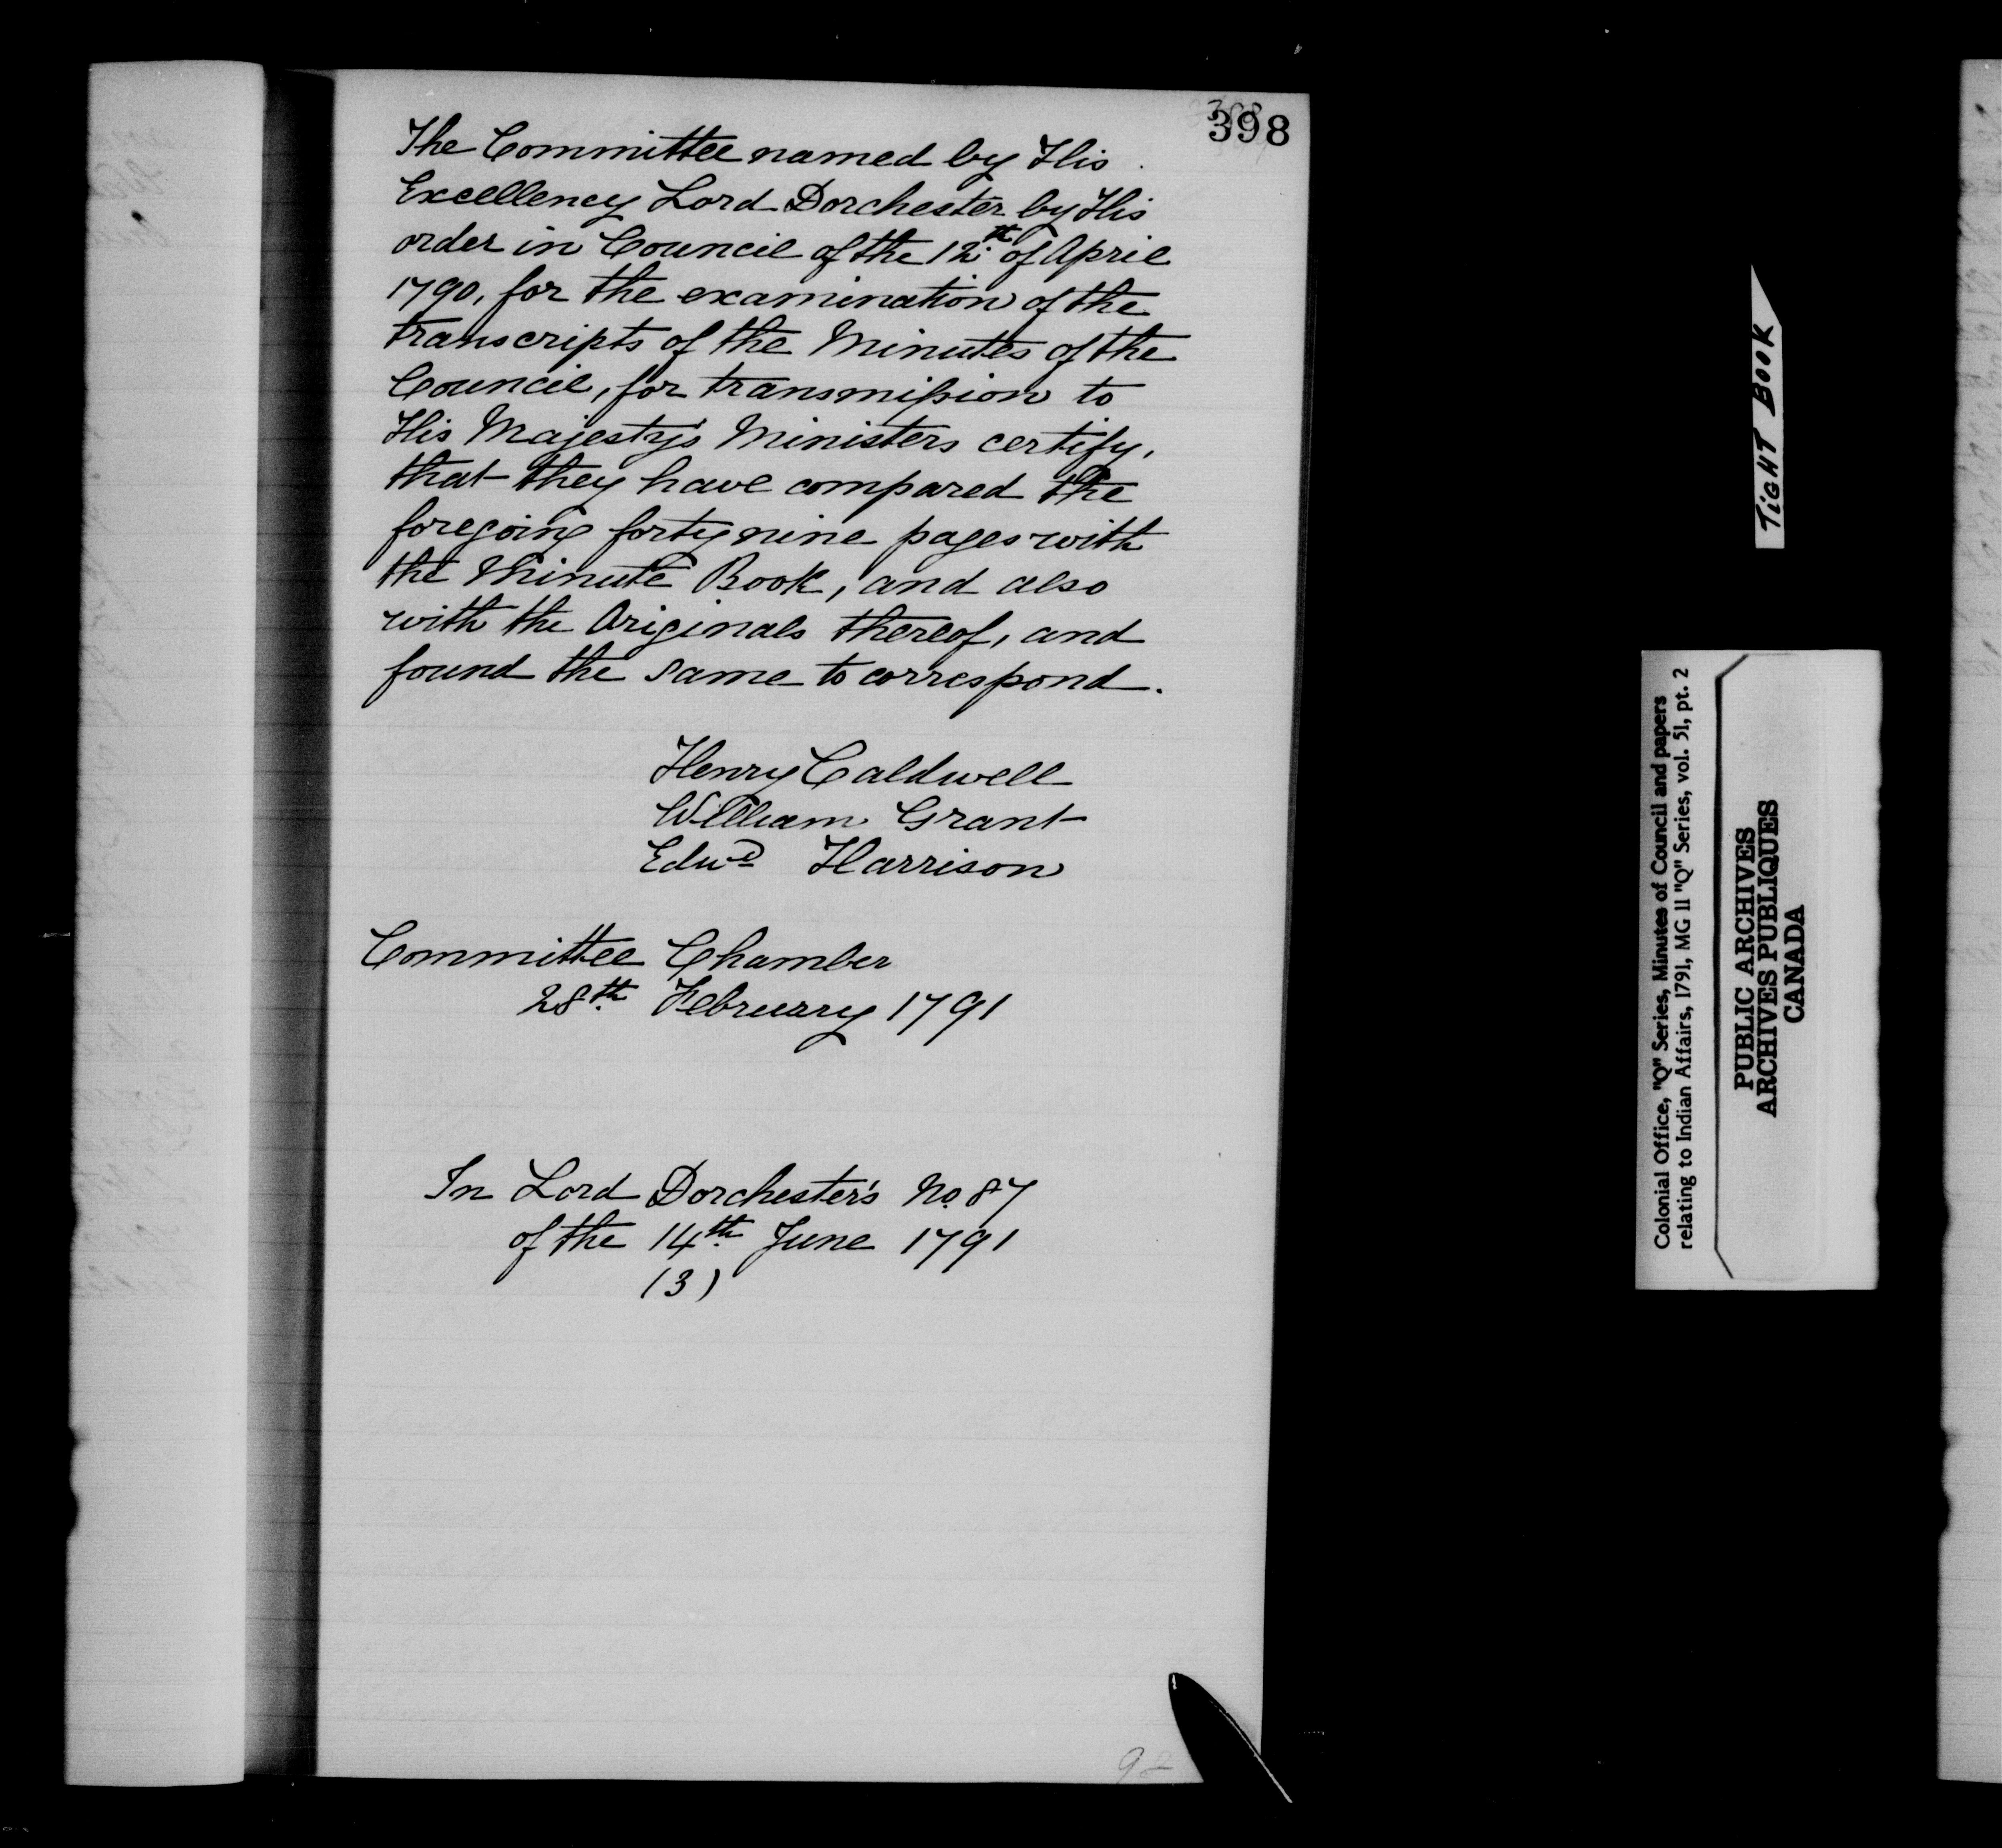 398
The Committee named by His
Excellency Lord Dorchester by His
order in Council of the 12th of April
1790, for the examination of the
transcripts of the Minutes of the
Council, for transmission to
His Majesty's Ministers certify,
that they have compared the
foregoing forty nine pages with
the Minute Book, and also
with the Originals thereof, and
found the same to correspond.
Henry Caldwell
William Grant
Edwd Harrison
Committee Chamber
28th February 1791
In Lord Dorchester's No. 87
of the 14th June 1791
(3)
92
TIGHT BOOK
Colonial Office, "Q" Series, Minutes of Council and papers
relating to Indian Affairs, 1791, MG 11 "Q" Series, vol. 51, pt. 2
PUBLIC ARCHIVES
ARCHIVES PUBLIQUES
CANADA